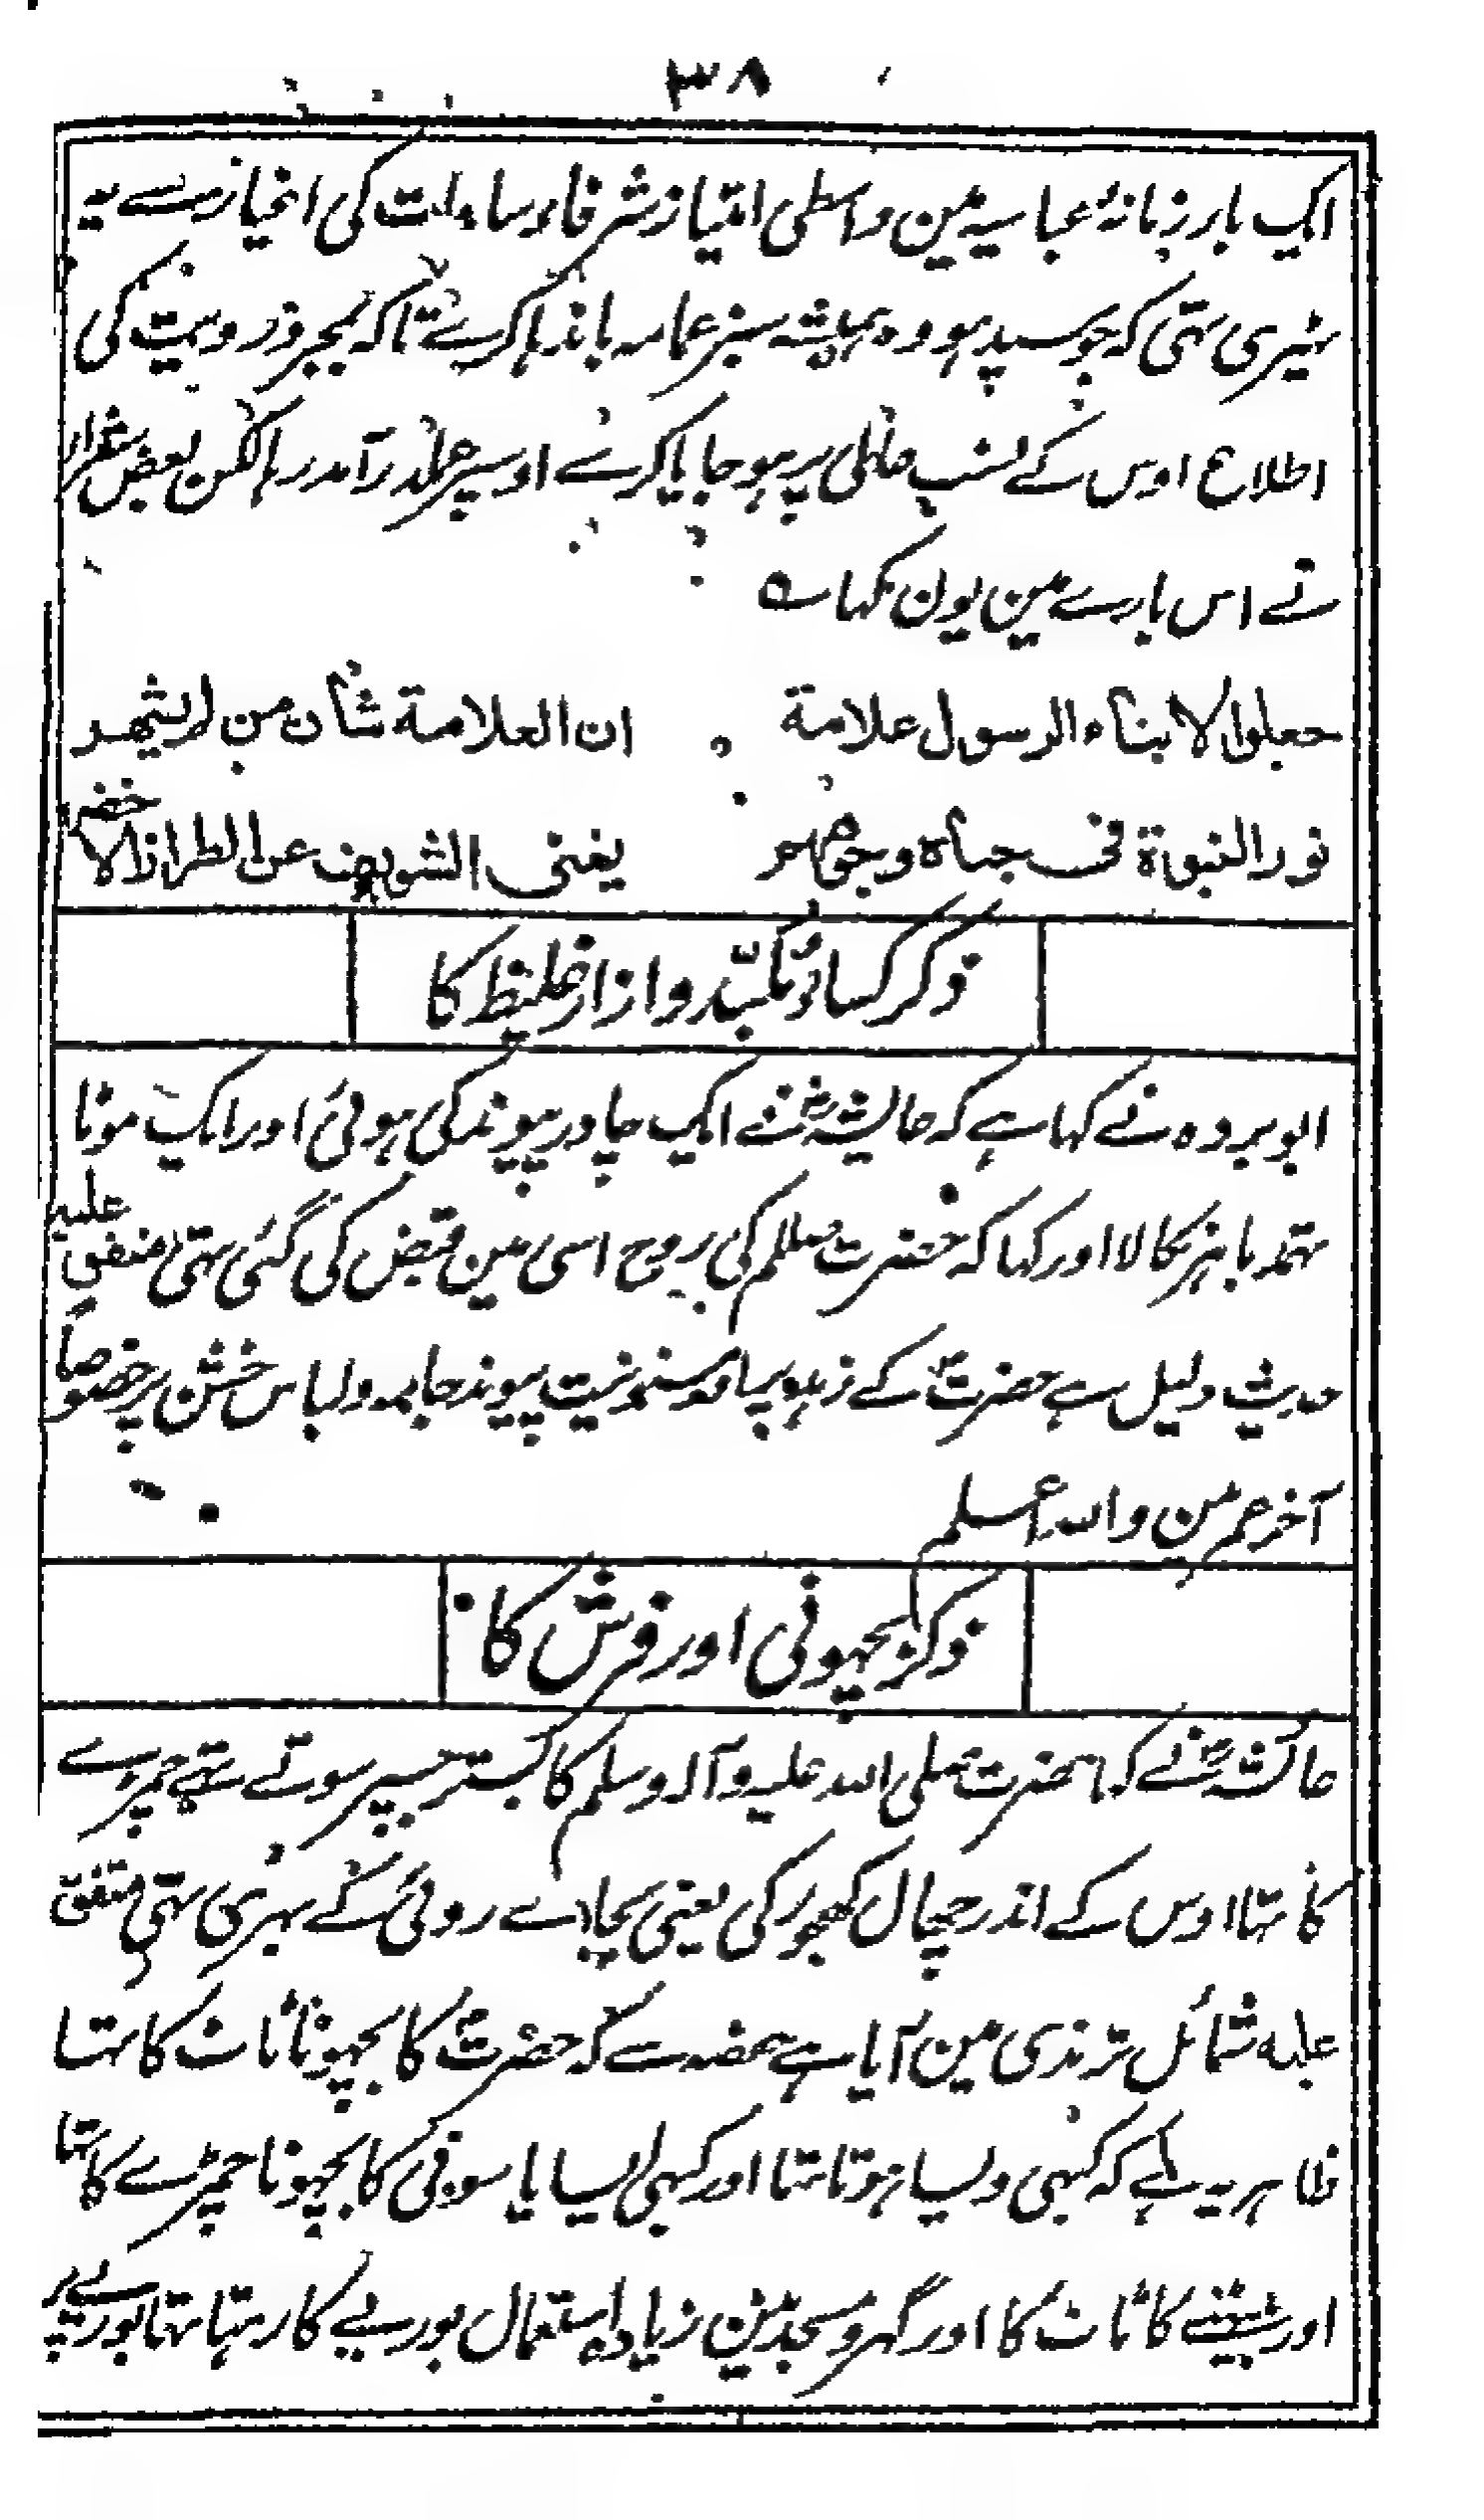 ۳۸
ایک بار زمانۂ عباسیہ مین واسطی امتیاز شرفا و سادات کی اغیار سے یہ
ٹہیری تہی کہ جو سید ہو وہ ہمیشہ سبز عمامہ باندہا کرے تاکہ بمجرد رویت کی
اطلاع اوس کے نسب فاطمی پر ہو جایا کرے اوسپر عملدرآمد رہا لکن بعض شعراء
نے اس بارے مین یون کہا ہے
جعلوا لابناء الرسول علامة ان العلامة شأن من لم يشهر
نور النبوة فی جباه وجوههم يغنی الشريف عن الطراز الاخضر
ذکر کسائے ملبّد و ازار غلیظ کا
ابو بردہ نے کہا ہے کہ عائشہؓ نے ایک چادر پیوند کی ہوئی اور ایک موٹا
تہمد باہر نکالا اور کہا کہ حضرت صلعم کی روح اسی مین قبض کی گئی تہی متفق علیہ
حدیث دلیل ہے حضرتؐ کے زہد پر اور مسنونیت پیوند جامہ و لباس خشن پر خصوصاً
آخر عمر مین واللہ اعلم
ذکر بچہونی اور فرش کا
عائشہؓ نے کہا حضرت صلی اللہ علیہ وآلہ وسلم کا بستر جسپر سوتے تہے چمڑے
کا تہا اوس کے اندر چہال کہجور کی یعنی بجاے روئی کے بہری تہی متفق
علیہ شمائل ترمذی مین آیا ہے حفصہ سے کہ حضرتؐ کا بچہونا ٹاٹ کا تہا
ظاہر یہ ہے کہ کبہی ویسا ہوتا تہا اور کبہی ایسا یا سونی کا بچہونا چمڑے کا تہا
اور بیٹہنے کا ٹاٹ کا اور گہر و مسجد مین زیادہ استعمال بوریے کا رہتا تہا بوریے پر